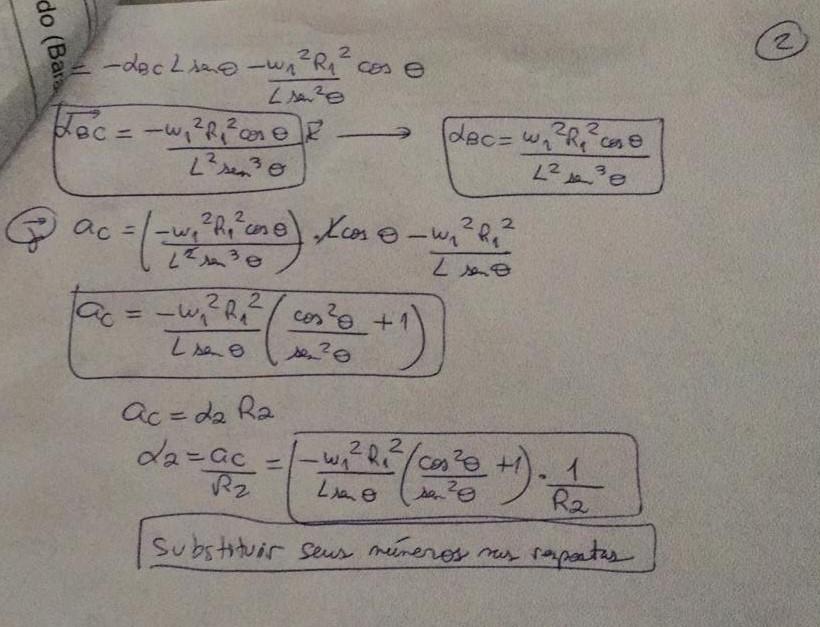 do (Bar
②
= -αBC L sen θ - ω₁²R₁²/(L sen²θ) cos θ
α⃗BC = -ω₁²R₁² cos θ/(L² sen³ θ) k⃗ → αBC = ω₁²R₁² cos θ/(L² sen³ θ)
(j⃗) aC = (-ω₁²R₁² cos θ/(L² sen³ θ)) · L cos θ - ω₁²R₁²/(L sen θ)
aC = -ω₁²R₁²/(L sen θ) (cos²θ/sen²θ + 1)
aC = α₂ R₂
α₂ = aC/R₂ = -ω₁²R₁²/(L sen θ) (cos²θ/sen²θ + 1) · 1/R₂
Substituir seus números nas respostas